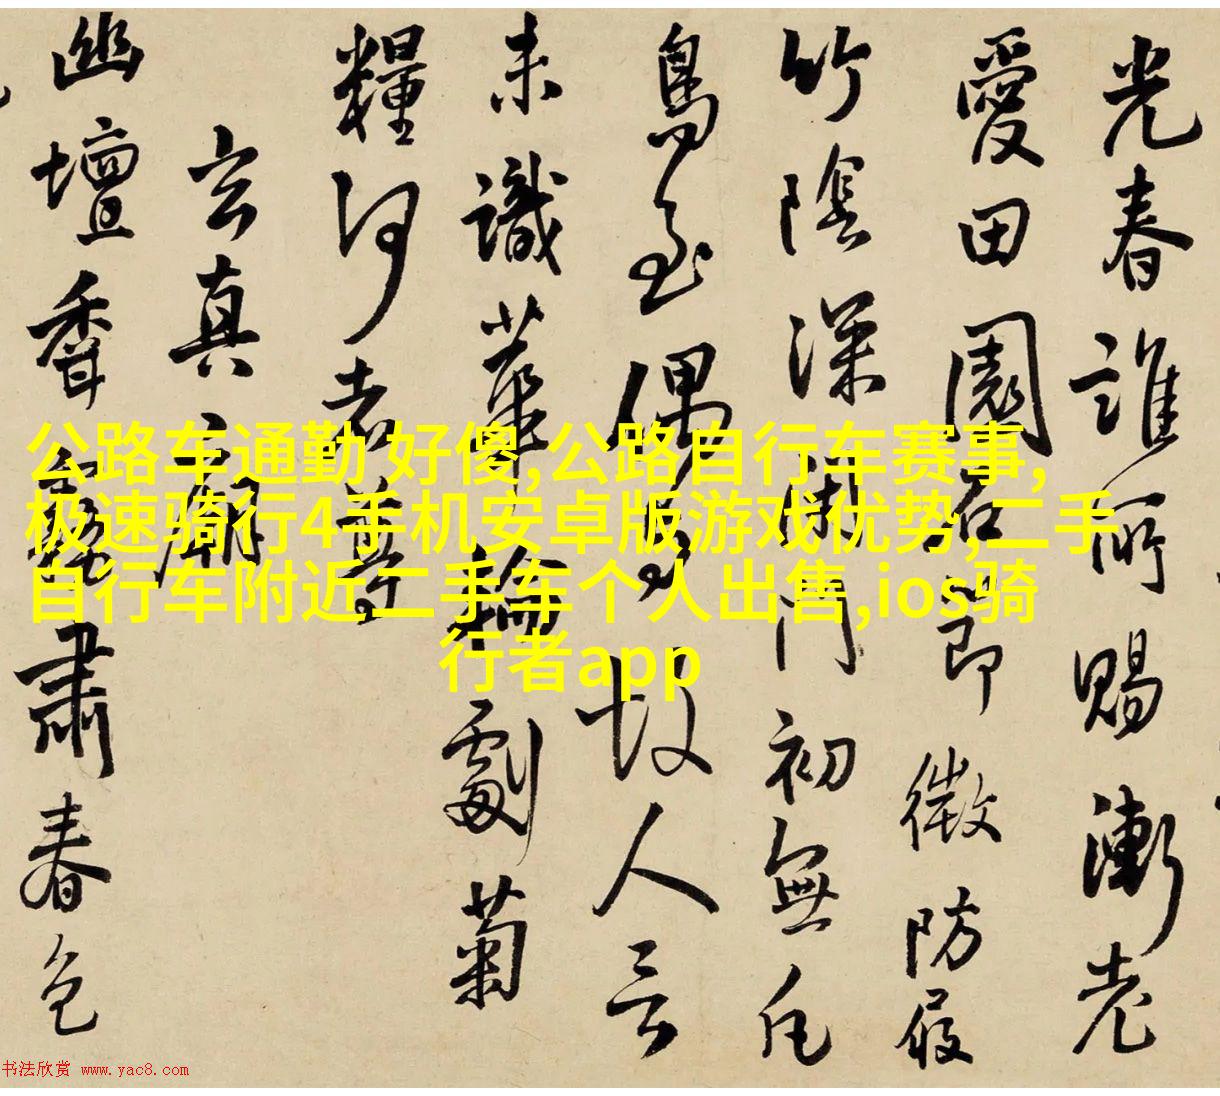 光春誰所賜漸老
愛田園即微防屐
竹陰深閉門初無凡
鳥至偶有故人言
未識華輪劇菊
糧何
玄真廟
幽壇肅春色
公路车通勤 好傻,公路自行车赛事,
极速骑行4手机安卓版游戏优势,二手
自行车附近二手车个人出售,ios骑
行者app
书法欣赏 www.yac8.com